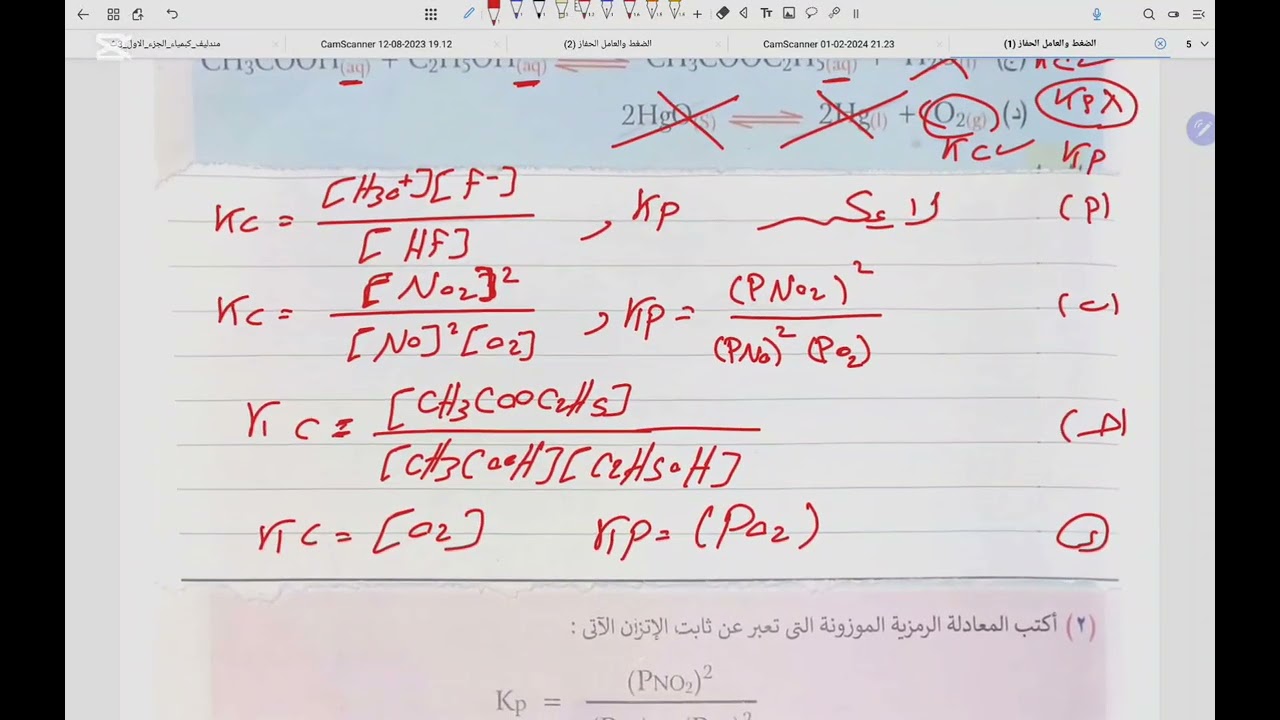 مندليف_كيمياء_الجزء_الاول_ث CamScanner 12-08-2023 19.12 الضغط والعامل الحفاز (2) CamScanner 01-02-2024 21.23 الضغط والعامل الحفاز (1) 5
CH3COOH(aq) + C2H5OH(aq) ⇌ CH3COOC2H5(aq) + (ج) Kc ✓
2HgO(s) ⇌ 2Hg(l) + O2(g) (د) Kp X
Kc ✓ Kp
Kc = [H3O+][F-] / [HF] , Kp (أ)
Kc = [NO2]² / [NO]² [O2] , Kp = (PNO2)² / (PNO)² (PO2) (ب)
Kc = [CH3COOC2H5] / [CH3COOH][C2H5OH] (ج)
Kc = [O2] Kp = (PO2) (د)
(٢) أكتب المعادلة الرمزية الموزونة التى تعبر عن ثابت الإتزان الآتى :
Kp = (PNO2)²